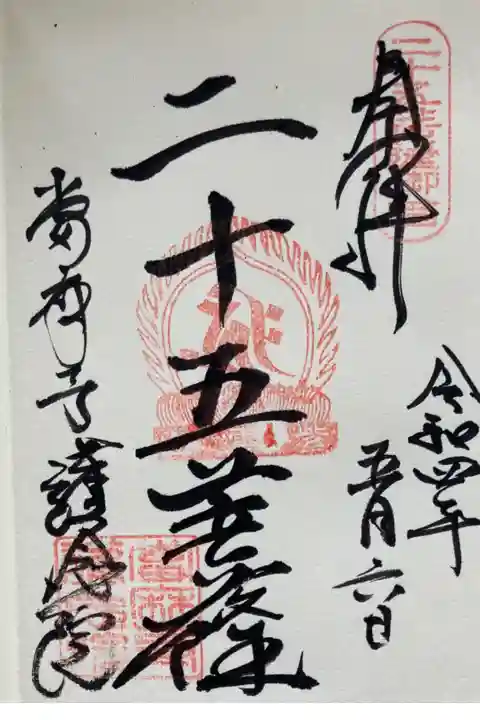 奉拝
令和四年
五月六日
二十五菩薩
當麻寺 護念院